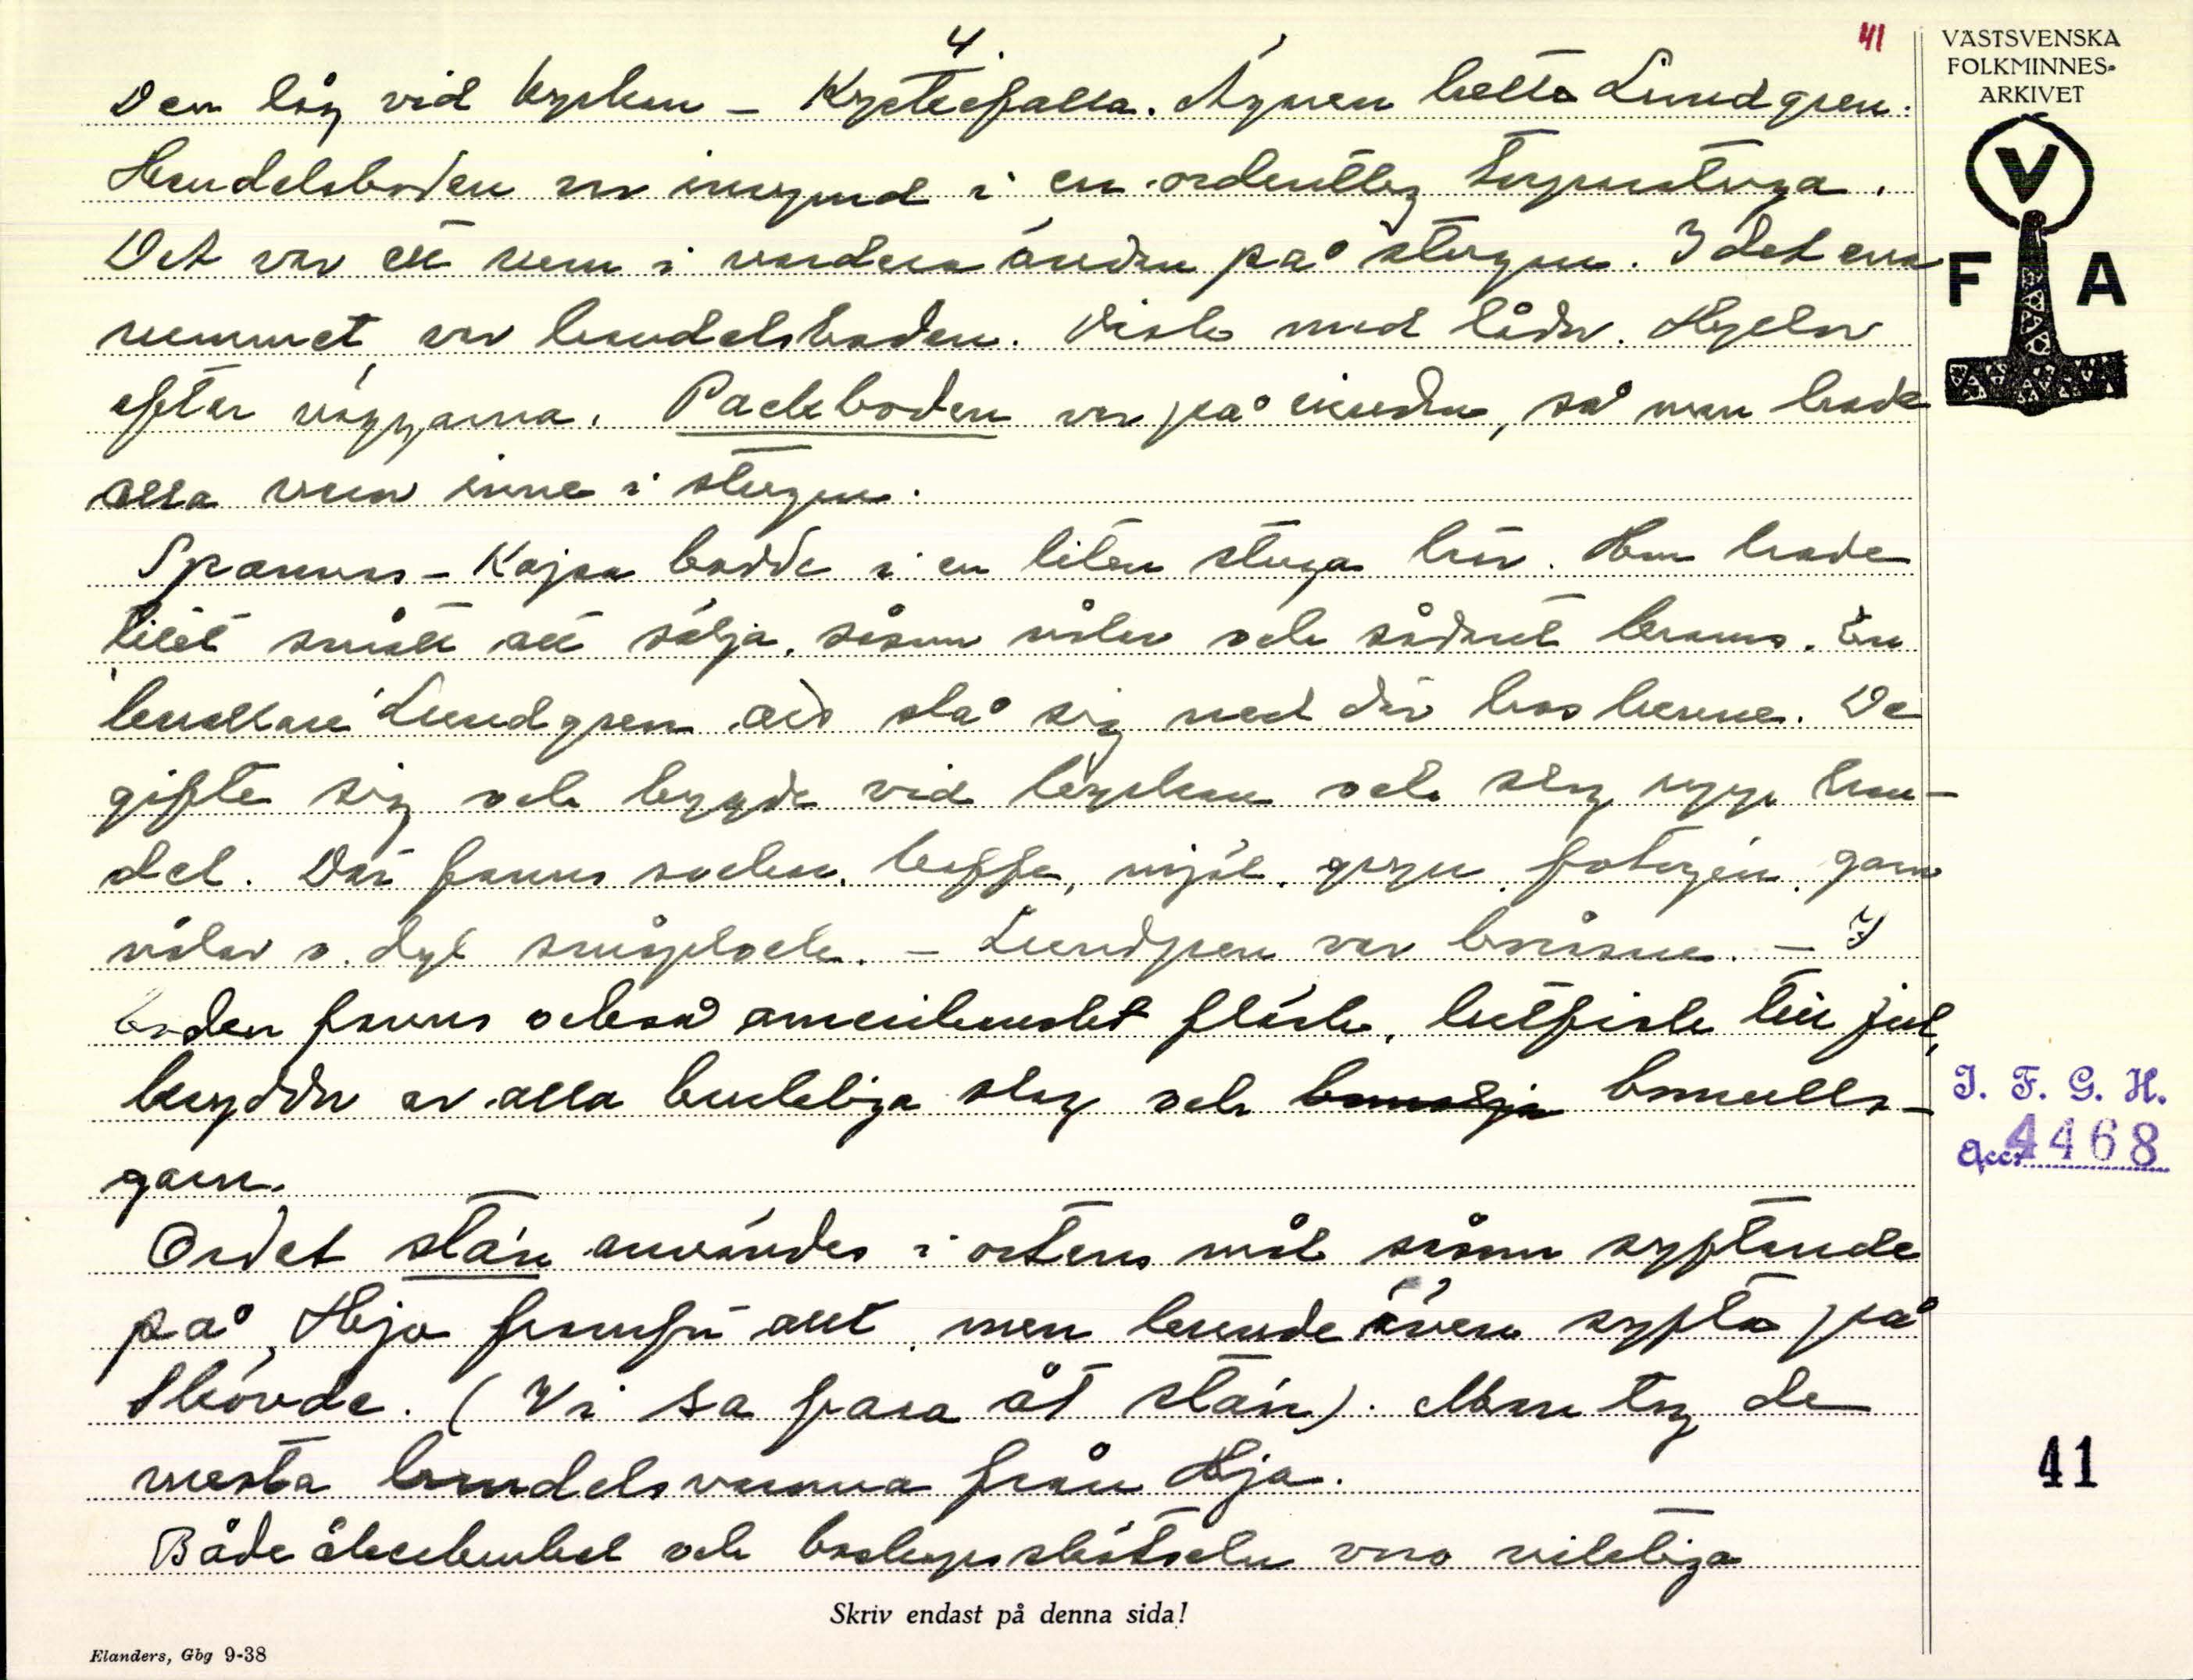 4.
41
Den låg vid kyrkan – Kyrkefalla. Ägaren hette Lundgren.
Handelsboden var inrymd i en ordentlig torpstuga.
Det var ett rum i vardera änden på stugan. I det ena
rummet var handelsboden. Disk med lådor. Hyllor
efter väggarna. Packboden var på vinden, så man hade
alla varor inne i stugan.
Spannas-Kajsa bodde i en liten stuga här. Hon hade
litet smått att sälja, såsom nålar och sådant krams. En
knallare Lundgren slo sig ned där hos henne. De
gifte sig och byggde vid kyrkan och slog upp han-
del. Där fanns socker, kaffe, mjöl, gryn, fotogén, garn
nålar o. dyl småplock. – Lundgren var boråsare. – I
boden fanns också amerikanskt fläsk, lutfisk till jul,
kryddor av alla tänkliga slag och bomulls-
garn.
Ordet stán användes i ortens mål såsom syftande
på Hjo framför allt, men kunde även syfta på
Skövde. (Vi sa fara åt stán). Man tog de
mesta handelsvarorna från Hjo.
Både åkerbruket och boskapsskötseln voro viktiga
Skriv endast på denna sida!
Elanders, Gbg 9-38
VÄSTSVENSKA
FOLKMINNES-
ARKIVET
V
F A
I. F. G. H.
Acc. 4468
41